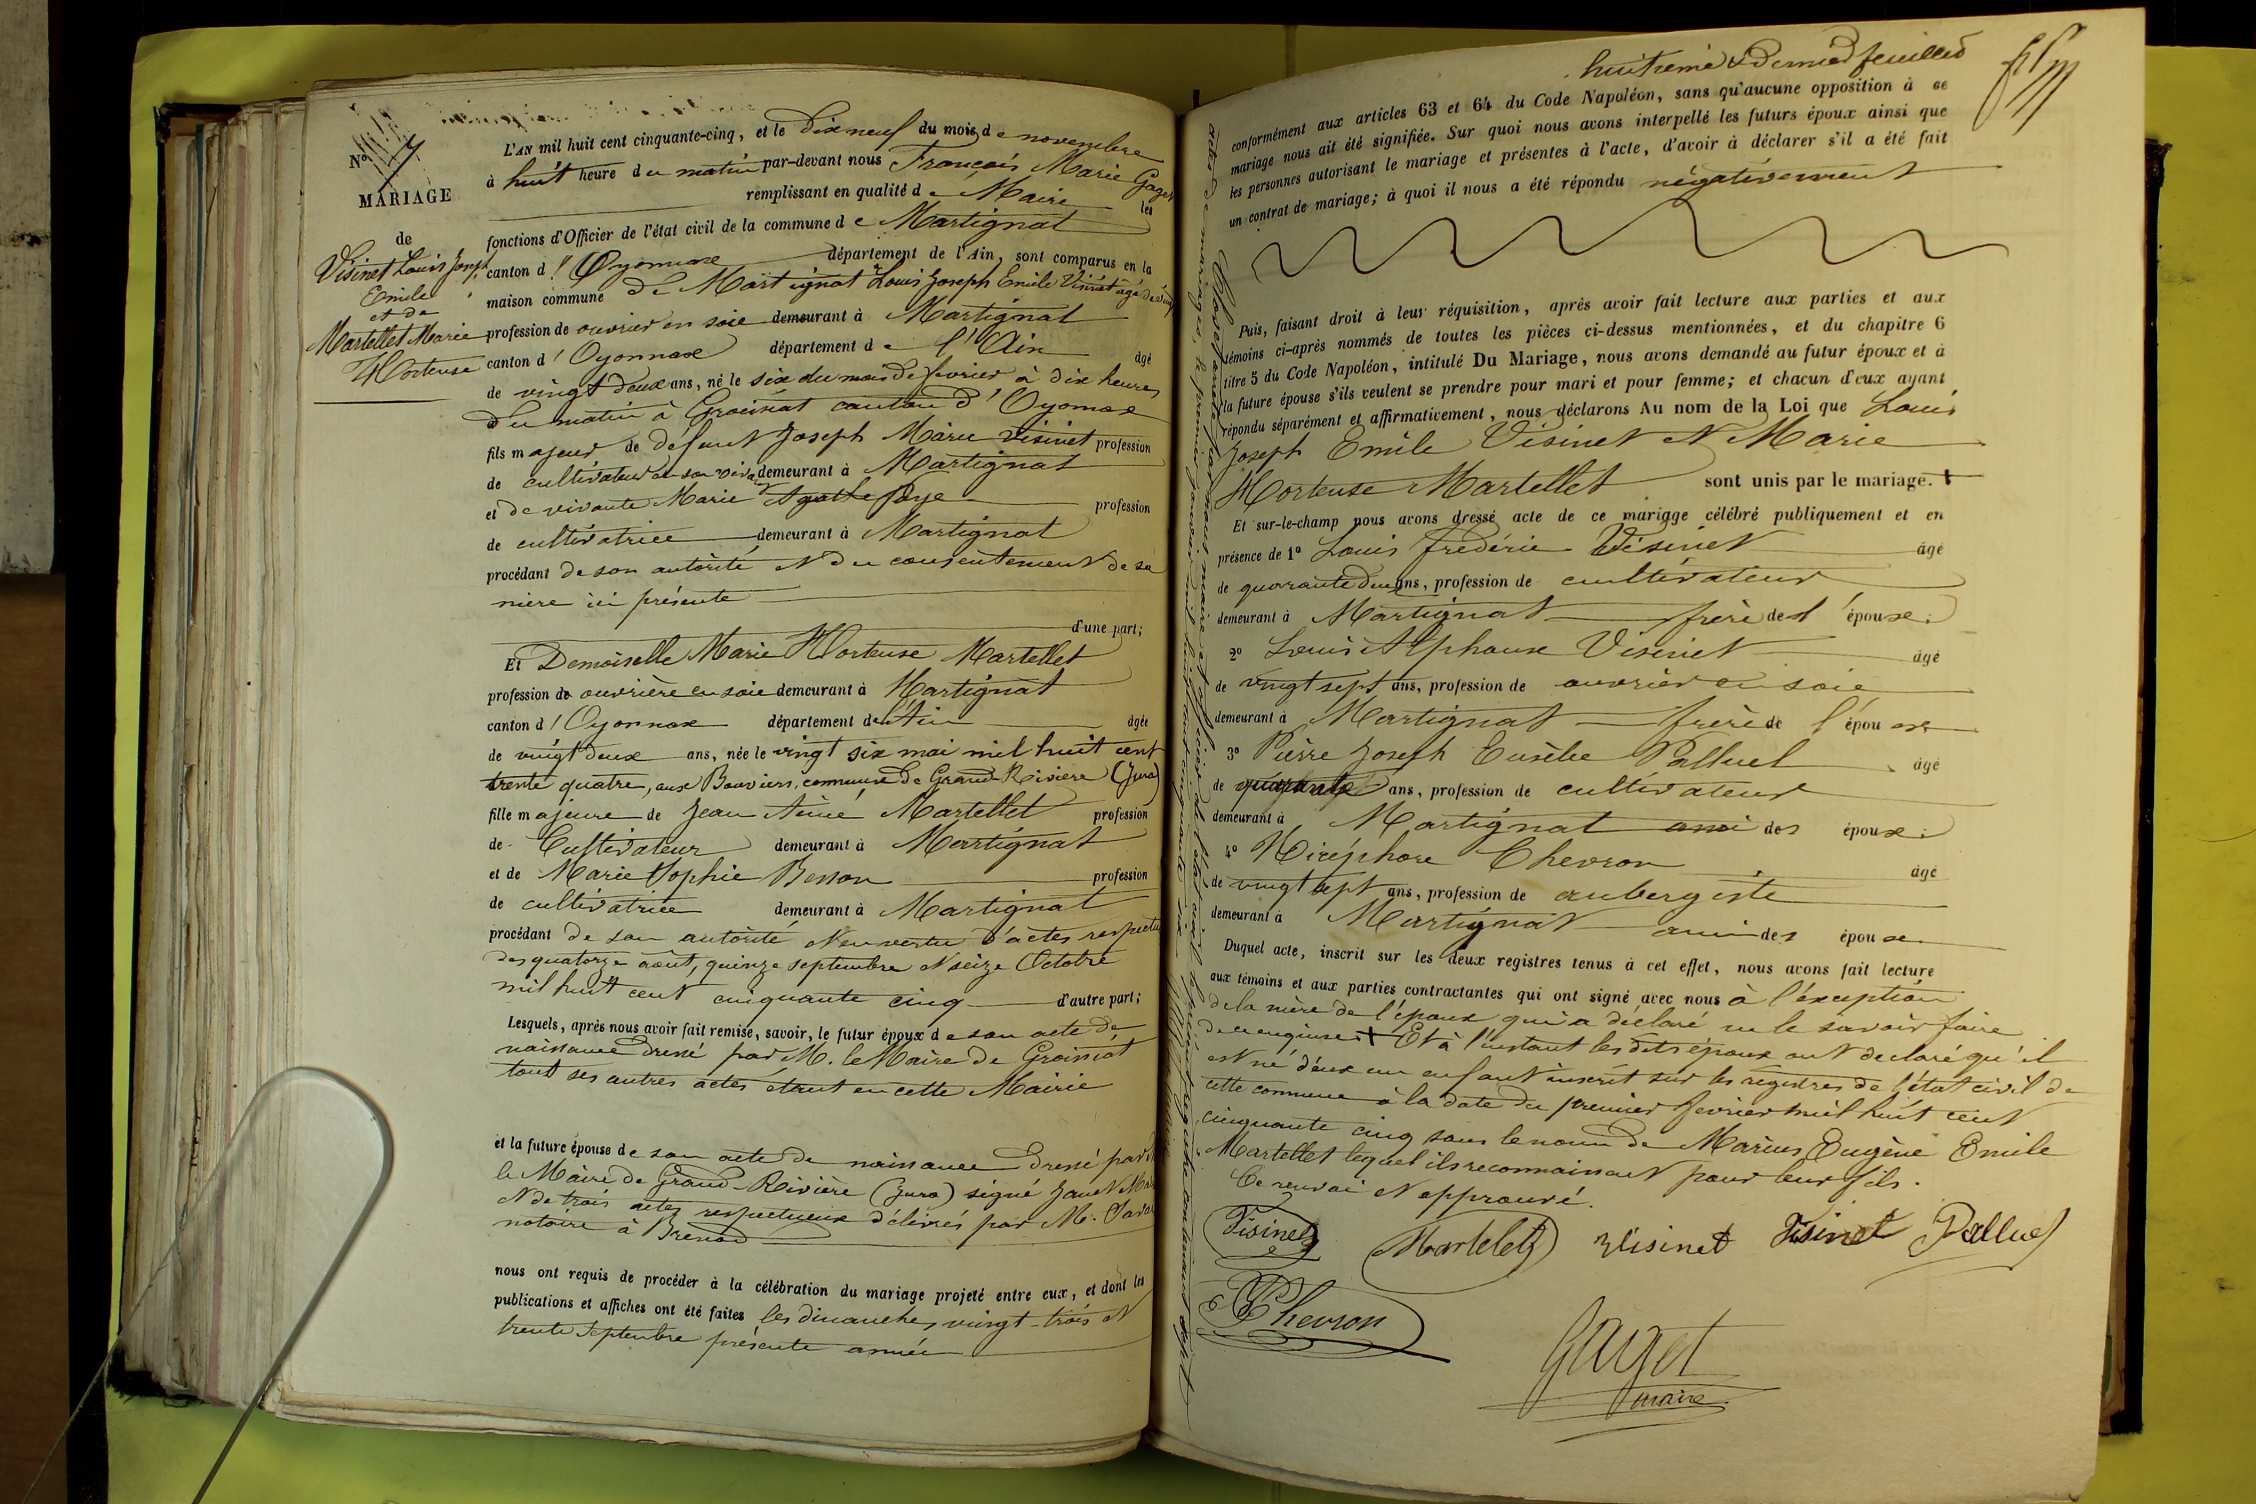 N° 7
MARIAGE
de
Visinet Louis Joseph
Emile
et de
Martellet Marie
Hortense
L'AN mil huit cent cinquante-cinq, et le Dix neuf du mois de novembre
à huit heure du matin par-devant nous François Marie Gaget
remplissant en qualité de Maire les
fonctions d'Officier de l'état civil de la commune de Martignat
canton d'Oyonnax département de l'Ain, sont comparus en la
maison commune de Martignat Louis Joseph Emile Visinet
profession de ouvrier en soie demeurant à Martignat
canton d'Oyonnax département de l'Ain âgé
de vingt deux ans, né le six du mois de fevrier à dix heures
du matin à Groissiat canton d'Oyonnax
fils majeur de défunt Joseph Marie Visinet profession
de cultivateur en son vivant demeurant à Martignat
et de vivante Marie Agathe Joye profession
de cultivatrice demeurant à Martignat
procédant de son autorité et du consentement de sa
mère ici présente
d'une part;
Et Demoiselle Marie Hortense Martellet
profession de ouvrière en soie demeurant à Martignat
canton d'Oyonnax département de l'Ain âgée
de vingt deux ans, née le vingt six mai mil huit cent
trente quatre, aux Bouviers, commune de Grand Rivière (Jura)
fille majeure de Jean Aimé Martellet profession
de Cultivateur demeurant à Martignat
et de Marie Sophie Besson profession
de cultivatrice demeurant à Martignat
procédant de son autorité et en vertu d'actes respectu
des quatorze août, quinze septembre et seize Octobre
mil huit cent cinquante cinq d'autre part;
Lesquels, après nous avoir fait remise, savoir, le futur époux de son acte de
naissance dressé par M. le Maire de Groissiat
tout ses autres actes étant en cette Mairie
et la future épouse de son acte de naissance dressé par
le Maire de Grand-Rivière (Jura) signé
et de trois actes respectueux délivrés par M.
notaire à Brenod
nous ont requis de procéder à la célébration du mariage projeté entre eux, et dont les
publications et affiches ont été faites les dimanches vingt-trois et
trente Septembre présente année
huitième & dernier feuillet
conformément aux articles 63 et 64 du Code Napoléon, sans qu'aucune opposition à ce
mariage nous ait été signifiée. Sur quoi nous avons interpellé les futurs époux ainsi que
les personnes autorisant le mariage et présentes à l'acte, d'avoir à déclarer s'il a été fait
un contrat de mariage; à quoi il nous a été répondu négativement
Puis, faisant droit à leur réquisition, après avoir fait lecture aux parties et aux
témoins ci-après nommés de toutes les pièces ci-dessus mentionnées, et du chapitre 6
titre 5 du Code Napoléon, intitulé Du Mariage, nous avons demandé au futur époux et à
la future épouse s'ils veulent se prendre pour mari et pour femme; et chacun d'eux ayant
répondu séparément et affirmativement, nous déclarons Au nom de la Loi que Louis
Joseph Emile Visinet et Marie
Hortense Martellet sont unis par le mariage. +
Et sur-le-champ nous avons dressé acte de ce mariage célébré publiquement et en
présence de 1° Louis frédéric Visinet âgé
de quarante deux ans, profession de cultivateur
demeurant à Martignat frère de l'époux.
2° Louis Alphonse Visinet âgé
de vingt sept ans, profession de ouvrier en soie
demeurant à Martignat frère de l'époux
3° Pierre Joseph Eusèbe Palluel âgé
de quarante ans, profession de cultivateur
demeurant à Martignat ami des époux.
4° Nicéphore Chevron âgé
de vingt sept ans, profession de aubergiste
demeurant à Martignat ami des époux
Duquel acte, inscrit sur les deux registres tenus à cet effet, nous avons fait lecture
aux témoins et aux parties contractantes qui ont signé avec nous à l'éxception
de la mère de l'époux qui a déclaré ne le savoir faire
de ce enquise. + Et à l'instant les dits époux ont declaré qu'il
est né d'eux un enfant inscrit sur les registres de l'état civil de
cette commune à la date du premier fevrier mil huit cent
cinquante cinq sous le nom de Marius Eugène Emile
Martellet lequel ils reconnaissent pour leur fils.
Ce renvoi et approuvé.
Visinet Martelet Visinet Visinet Palluel
Chevron
Gaget
maire